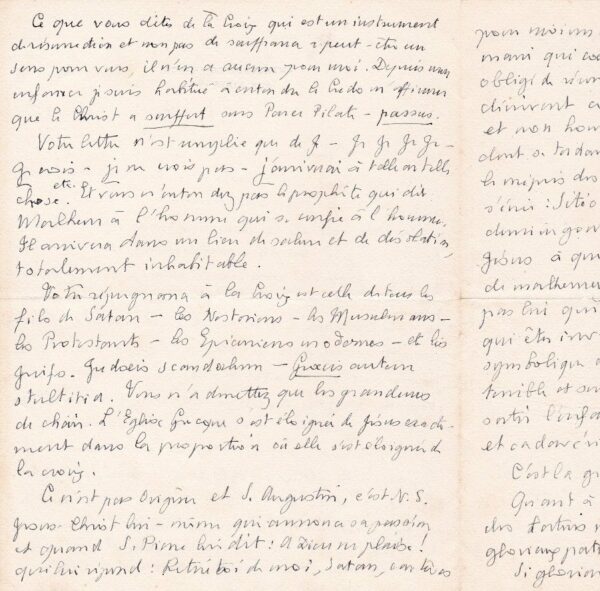 Ce que vous dites de la Croix qui est un instrument
de résurrection et non pas de souffrance peut-être un
sens pour vous, il n'en a aucun pour moi. Depuis mon
enfance je suis habitué à entendre le Credo m'affirmer
que le Christ a souffert sous Ponce Pilate - passus.
Votre lettre n'est remplie que de Je - Je Je Je Je -
Je crois - je ne crois pas - j'arriverai à telle ou telle
chose etc. Et vous n'entendez pas le prophète qui dit :
Malheur à l'homme qui se confie à l'homme,
Il arrivera dans un lieu de salure et de désolation,
totalement inhabitable.
Votre répugnance à la Croix est celle de tous les
fils de Satan - les Nestoriens - les Musulmans -
les Protestants - les Epicuriens modernes - et les
Juifs. Judaeis scandalum - Graecis autem
stultitia. Vous n'admettez que les grandeurs
de chair. L'Eglise Grecque s'est éloignée de Jésus exacte-
ment dans la proportion où elle s'est éloignée de
la croix.
Ce n'est pas Origène et S. Augustin, c'est N. S.
Jésus-Christ lui-même qui annonce sa passion
et quand S. Pierre lui dit : A Dieu ne plaise !
qui lui répond : Retire toi de moi, Satan, car tu es
pour moi un
mani
obligé de
et non
dont
le mépris des
s'écrie : Sitio
Jésus à
de malheureux
pas lui qui
qui êtes
symbolique
terrible et
sortir l'enf
et cadavéri
C'est la
Quant à
des
glorieux
Si glorieux